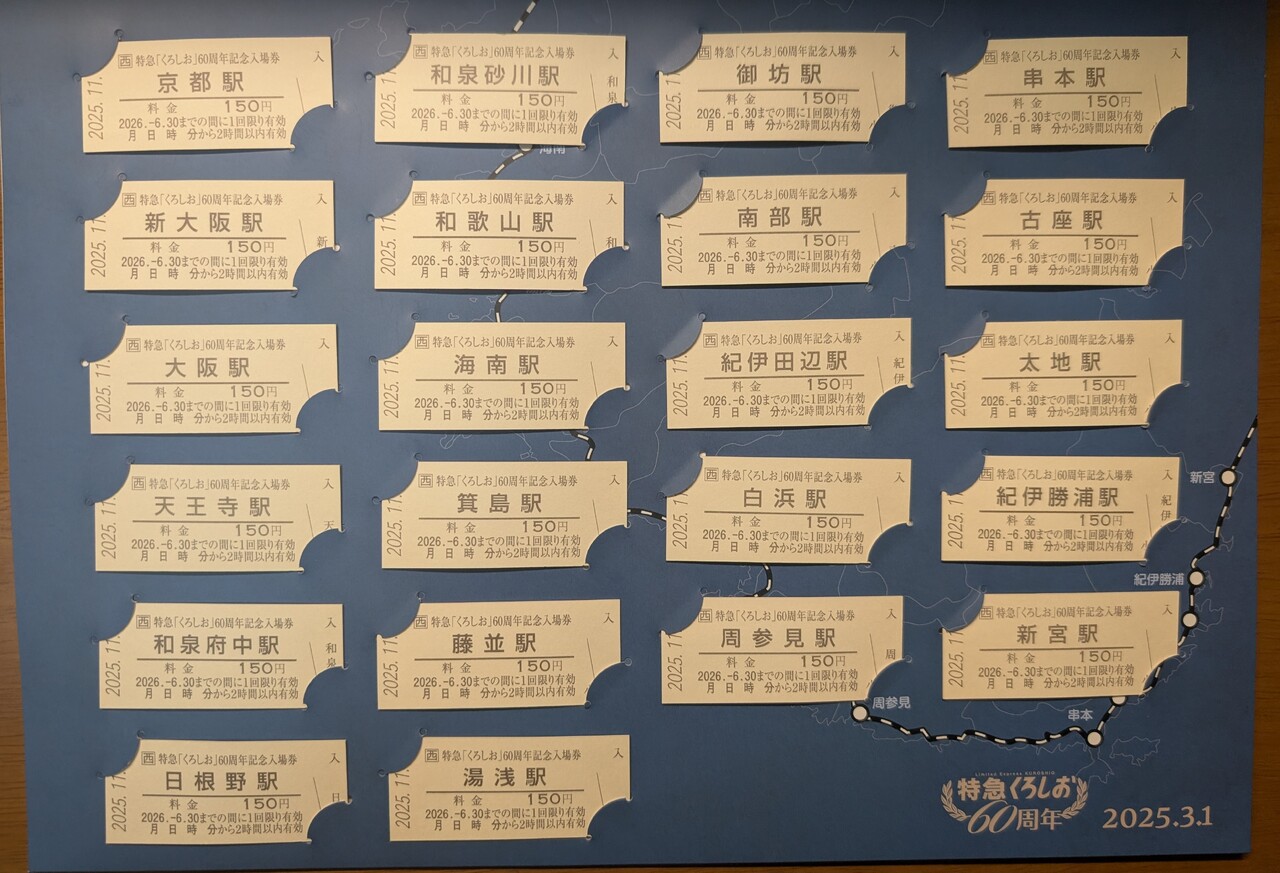 西 特急「くろしお」60周年記念入場券 入
京都駅
料金 150円
2026.-6.30までの間に1回限り有効
月 日 時 分から2時間以内有効
2025. 11.
西 特急「くろしお」60周年記念入場券 入
新大阪駅
料金 150円
2026.-6.30までの間に1回限り有効
月 日 時 分から2時間以内有効
2025. 11.
新
西 特急「くろしお」60周年記念入場券 入
大阪駅
料金 150円
2026.-6.30までの間に1回限り有効
月 日 時 分から2時間以内有効
2025. 11.
西 特急「くろしお」60周年記念入場券 入
天王寺駅
料金 150円
2026.-6.30までの間に1回限り有効
月 日 時 分から2時間以内有効
2025. 11.
天
西 特急「くろしお」60周年記念入場券 入
和泉府中駅
料金 150円
2026.-6.30までの間に1回限り有効
月 日 時 分から2時間以内有効
2025. 11.
和泉
西 特急「くろしお」60周年記念入場券 入
日根野駅
料金 150円
2026.-6.30までの間に1回限り有効
月 日 時 分から2時間以内有効
2025. 11.
日
西 特急「くろしお」60周年記念入場券 入
和泉砂川駅
料金 150円
2026.-6.30までの間に1回限り有効
月 日 時 分から2時間以内有効
2025. 11.
和泉
海南
西 特急「くろしお」60周年記念入場券 入
和歌山駅
料金 150円
2026.-6.30までの間に1回限り有効
月 日 時 分から2時間以内有効
2025. 11.
和
西 特急「くろしお」60周年記念入場券 入
海南駅
料金 150円
2026.-6.30までの間に1回限り有効
月 日 時 分から2時間以内有効
2025. 11.
西 特急「くろしお」60周年記念入場券 入
箕島駅
料金 150円
2026.-6.30までの間に1回限り有効
月 日 時 分から2時間以内有効
2025. 11.
西 特急「くろしお」60周年記念入場券 入
藤並駅
料金 150円
2026.-6.30までの間に1回限り有効
月 日 時 分から2時間以内有効
2025. 11.
西 特急「くろしお」60周年記念入場券 入
湯浅駅
料金 150円
2026.-6.30までの間に1回限り有効
月 日 時 分から2時間以内有効
2025. 11.
西 特急「くろしお」60周年記念入場券 入
御坊駅
料金 150円
2026.-6.30までの間に1回限り有効
月 日 時 分から2時間以内有効
2025. 11.
西 特急「くろしお」60周年記念入場券 入
南部駅
料金 150円
2026.-6.30までの間に1回限り有効
月 日 時 分から2時間以内有効
2025. 11.
西 特急「くろしお」60周年記念入場券 入
紀伊田辺駅
料金 150円
2026.-6.30までの間に1回限り有効
月 日 時 分から2時間以内有効
2025. 11.
紀伊
西 特急「くろしお」60周年記念入場券 入
白浜駅
料金 150円
2026.-6.30までの間に1回限り有効
月 日 時 分から2時間以内有効
2025. 11.
西 特急「くろしお」60周年記念入場券 入
周参見駅
料金 150円
2026.-6.30までの間に1回限り有効
月 日 時 分から2時間以内有効
2025. 11.
周
西 特急「くろしお」60周年記念入場券 入
串本駅
料金 150円
2026.-6.30までの間に1回限り有効
月 日 時 分から2時間以内有効
2025. 11.
西 特急「くろしお」60周年記念入場券 入
古座駅
料金 150円
2026.-6.30までの間に1回限り有効
月 日 時 分から2時間以内有効
2025. 11.
西 特急「くろしお」60周年記念入場券 入
太地駅
料金 150円
2026.-6.30までの間に1回限り有効
月 日 時 分から2時間以内有効
2025. 11.
西 特急「くろしお」60周年記念入場券 入
紀伊勝浦駅
料金 150円
2026.-6.30までの間に1回限り有効
月 日 時 分から2時間以内有効
2025. 11.
紀伊
西 特急「くろしお」60周年記念入場券 入
新宮駅
料金 150円
2026.-6.30までの間に1回限り有効
月 日 時 分から2時間以内有効
2025. 11.
新宮
紀伊勝浦
周参見
串本
Limited Express KUROSHIO
特急くろしお
60周年
2025.3.1